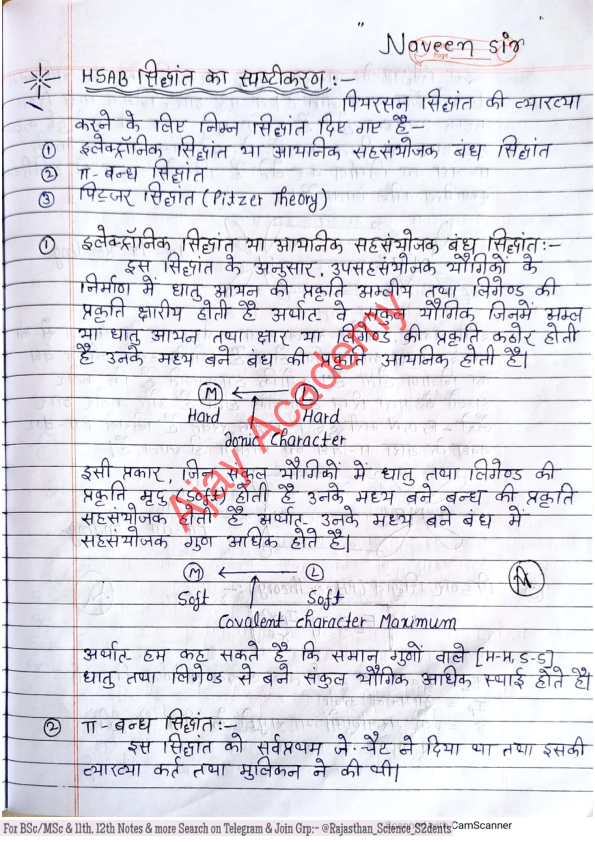 Naveen sir
Page
HSAB सिद्धांत का स्पष्टीकरण :-
पियरसन सिद्धांत की व्याख्या
करने के लिए निम्न सिद्धांत दिए गए है-
① इलेक्ट्रॉनिक सिद्धांत या आयनिक सहसंयोजक बंध सिद्धांत
② π - बन्ध सिद्धांत
③ पिट्जर सिद्धांत (Pitzer Theory)
① इलेक्ट्रॉनिक सिद्धांत या आयनिक सहसंयोजक बंध सिद्धांत:-
इस सिद्धांत के अनुसार, उपसहसंयोजक यौगिकों के
निर्माण में धातु आयन की प्रकृति अम्लीय तथा लिगेण्ड की
प्रकृति क्षारीय होती है अर्थात- वे संकुल यौगिक जिनमें अम्ल
या धातु आयन तथा क्षार या लिगेण्ड की प्रकृति कठोर होती
है उनके मध्य बने बंध की प्रकृति आयनिक होती है।
M ← L
Hard Hard
Ionic Character
इसी प्रकार, जिन संकुल यौगिकों में धातु तथा लिगेण्ड की
प्रकृति मृदु (Soft) होती है उनके मध्य बने बन्ध की प्रकृति
सहसंयोजक होती है अर्थात- उनके मध्य बने बंध में
सहसंयोजक गुण अधिक होते है।
M ← L
Soft Soft
Covalent character Maximum
अर्थात- हम कह सकते है कि समान गुणों वाले [H-H, S-S]
धातु तथा लिगेण्ड से बने संकुल यौगिक अधिक स्थाई होते है।
② π - बन्ध सिद्धांत:-
इस सिद्धांत को सर्वप्रथम जे. चैट ने दिया था तथा इसकी
व्याख्या कर्त तथा मुलिकन ने की थी।
Ajay Academy
For BSc/MSc & 11th, 12th Notes & more Search on Telegram & Join Grp:- @Rajasthan_Science_S2dents CamScanner